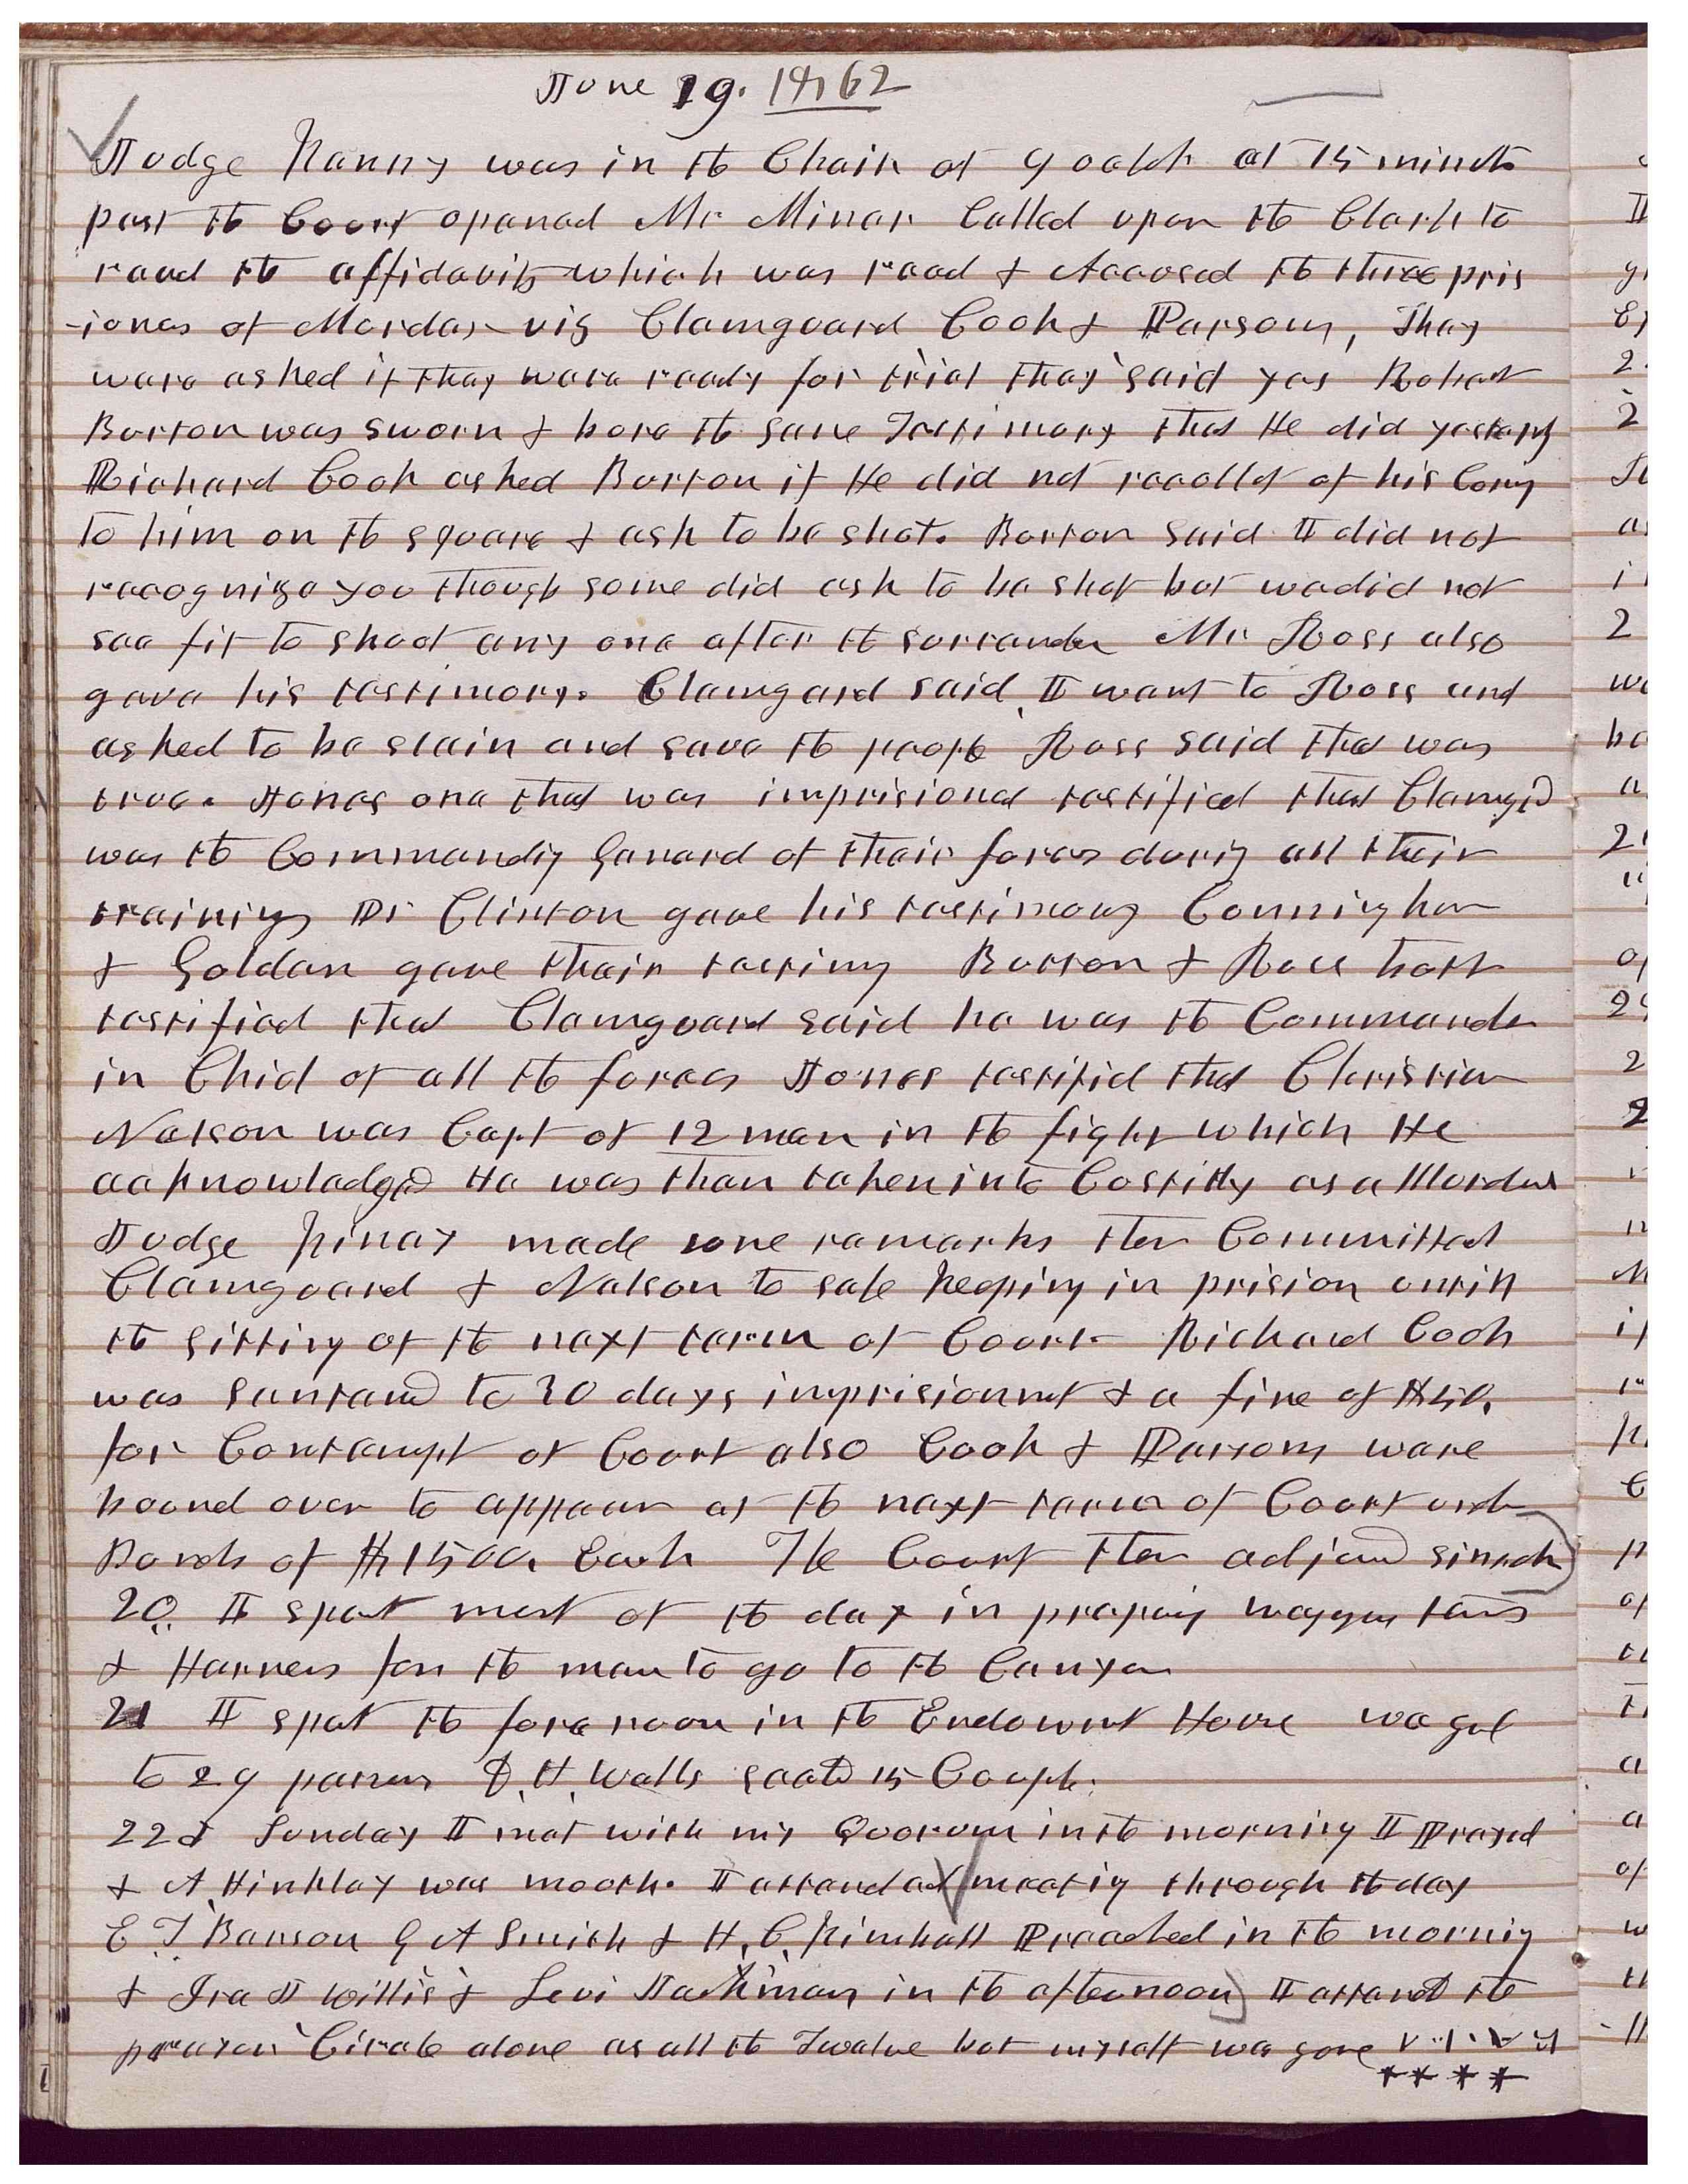 June 19. 1862
Judge Kanny was in the Chair at 9 oclok at 15 minuts
past the Court opened Mr Miner Called upon the Clerk to
read the affidavits which was read & Accused the three pris
-iones of Murder viz Clemguard Cook & Parsons, They
ware asked if they ware ready for trial they said yes Robert
Burton was sworn & bore the same Testimony that He did yesterdy
Richard Cook asked Burton if He did not recollet of his Comig
to him on the square & ask to be shot. Burton said I did not
recognize you though some did ask to be shot but we did not
see fit to shoot any one after the surrender Mr Ross also
gave his testimony. Clemgard said I went to Ross and
asked to be slain and save the people Ross said that was
true. Jones one that was imprisioned testified that Clemgd
was the Commandig General of their forces durig all their
trainings Dr Clinton gave his testimony Cunningham
& Golden gave their testimy Burton & Ross both
testified that Clemguard said he was the Commander
in Chief of all the forces Jones testifid that Christian
Nelson was Capt of 12 men in the fight which He
acknowledged He was then taken into Custitty as a Murderer
Judge Kiney made some remarks then Committed
Clemguard & Nelson to safe keeping in prision untill
the sitting of the next term of Court Richard Cook
was sentand to 30 days imprisionmt & a fine of $50.
for Contempt of Court also Cook & Parsons ware
bound over to appear at the next term of Court under
Bonds of $1500. Each The Court then adjournd sinedie
20. I spent most of the day in prepaig waggons teams
& Harness for the men to go to the Canyon
21 I spent the fore noon in the Endowmt House we gave
to 29 persons D. H. Wells sealed 15 Coupls.
22d Sunday I met with my Quorum in the morning I Prayed
& A Hinkley was mouth. I attended meetig through the day
E. T. Benson G A Smith & H. C. Kimball Preached in the mornig
& Ira J Willis & Levi Jackman in the afternoon I attend the
prayer Circle alone as all the Twelve but myself was gone
****